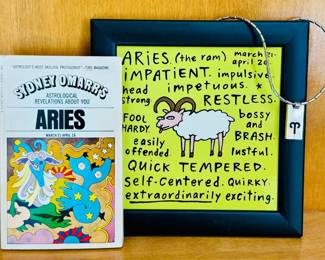 "ASTROLOGY'S MOST SKILLFUL PROTAGONIST"-TIME MAGAZINE
SYDNEY OMARR'S
ASTROLOGICAL
REVELATIONS ABOUT YOU
ARIES
MARCH 21-APRIL 20
ARiES. (the ram) march 21-
april 20
iMPATiENT. impulsive
head strong. impetuous.
RESTLESS.
FOOL HARDY.
bossy and BRASH.
easily offended.
lustful.
QUICK TEMPERED.
Self-Centered. QUIRKY.
extraordinarily exciting.